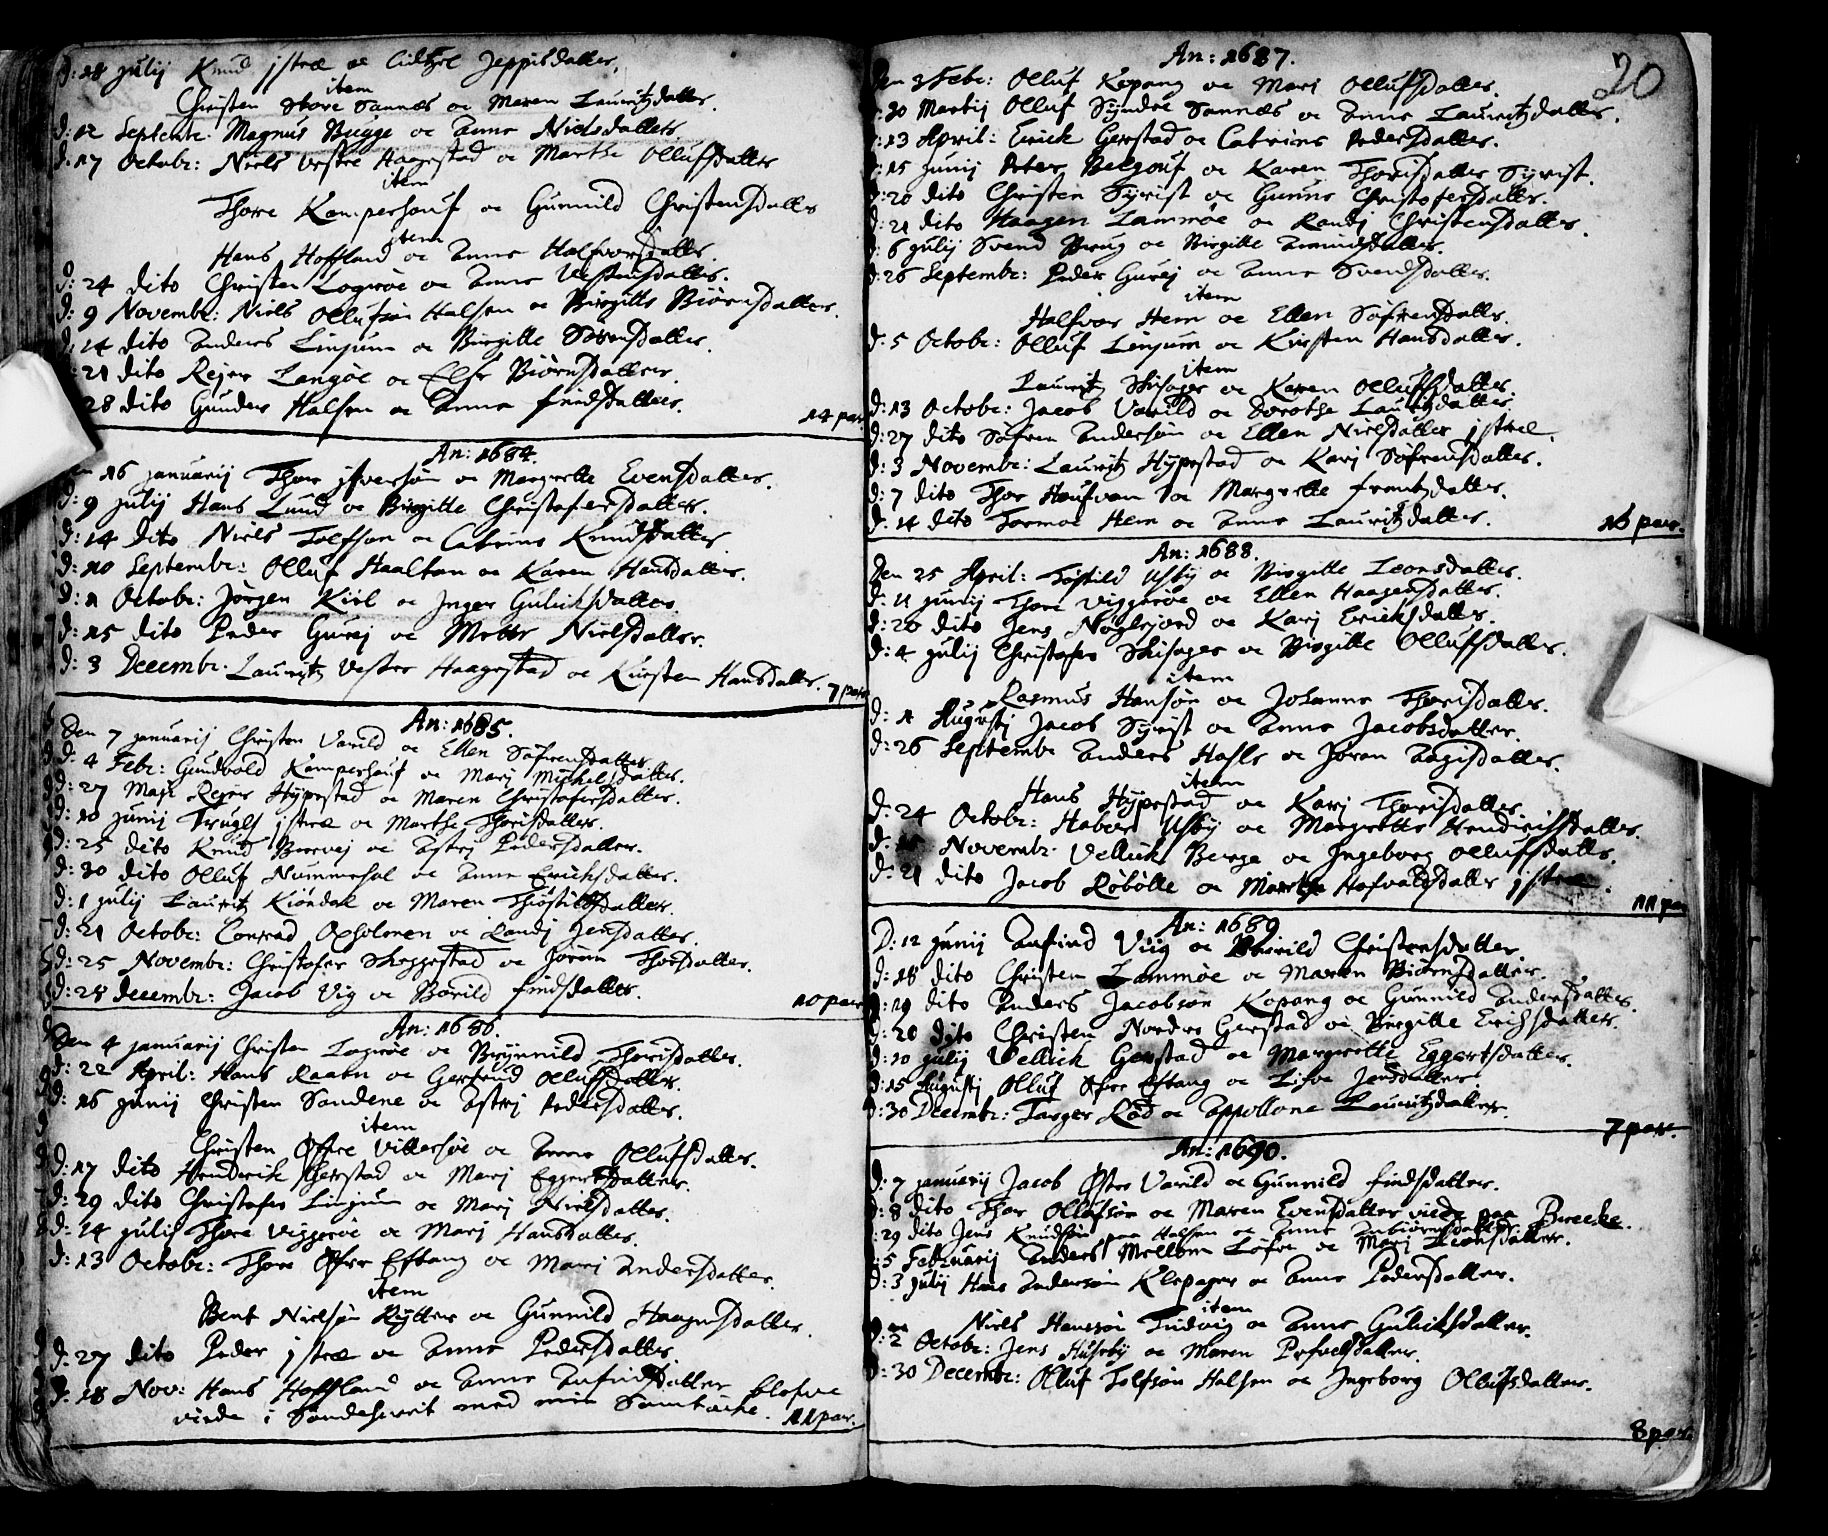 d: 18 Julij Knud jstræ oc Jeppisdatter.
item
Christen Store Sannæs oc Maren Lauritzdatter.
d: 12 Septembr: Magnus Bugge oc Anne Nielsdatter
d: 17 Octobr: Niels Vestre Haagestad oc Marthe Ollufsdatter
item
Thore Kamperhouf oc Gunnild Christensdatter
item
Hans Hoffland oc Anne Halfvorsdatter.
d: 24 dito Christen Logrøe oc Anne
d: 9 Novembr: Niels Ollufsøn Halsen oc Birgitte Biørnsdatter.
d: 14 dito Anders Linjum oc Birgitte Sørensdatter.
d: 21 dito Rejer Langøe oc Else Biørnsdatter.
28 dito Gunder Halsen oc Anne findsdatter. 14 par.
An: 1684.
den 16 januarij Thore jfversøn oc Margrette Evensdatter.
d: 9 julij Hans Lund oc Birgitte Christofersdatter.
d: 14 dito Niels Tolfson oc Catrine Knudsdatter
d: 10 Septembr: Olluf Haaltan oc Karen Hansdatter.
d: 1 Octobr: Jørgen Kiel oc Inger Gulichsdatter.
d: 15 dito Peder Gurej oc Mette Nielsdatter.
d: 3 Decembr. Lauritz Vestre Haagestad oc Kirsten Hansdatter. 7 par
An: 1685.
Den 7 januarij Christen Varild oc Ellen Søfrensdatter
d: 4 Febr: Gundvold Kamperhouf oc Marj Michelsdatter.
d: 27 Maji Rejer Hÿpestad oc Maren Christofersdatter.
d: 10 Junij Trugls jstræ oc Marthe Thorisdatter.
d: 25 dito Knud Borrej oc Astrj Pedersdatter.
d: 30 dito Olluf Nummedal oc Anne Erichsdatter.
d: 1 julij Lauritz Kiøndal oc Maren Thostelsdatter.
d: 21 Octobr: Conrad Oxholmen oc Randj Jensdatter.
d: 25 Novembr: Christofer Skeggestad oc Jøren Thorsdatter.
d: 28 decembr: Jacob Vig oc Borild findsdatter. 10 par
An: 1686.
Den 4 januarij Christen Logrøe oc Brÿnnild Thorisdatter.
d: 22 April: Hans Raaen oc Gertrud Ollufsdatter.
d: 16 junij Christen Sondene oc Astrj Pedersdatter.
item
Christen Øfre Villersøe oc Anne Ollufsdatter.
d: 17 dito Henderik Gierstad oc Marj Eggertsdatter.
d: 29 dito Christofer Linjum oc Marj Nielsdatter.
d: 14 julij Thore Viggerøe oc Marj Hansdatter.
d: 13 Octobr: Thore Øfre Eftang oc Marj Andersdatter.
item
Bent Nielsøn Rÿtter oc Gunnild Haagensdatter.
d: 27 dito Peder jstræ oc Anne Pedersdatter.
d: 18 Nov: Hans Hoffland oc Anne Anfindsdatter blefve
viede i Sandeherrit med min Samtÿcke. 11 par.
20
An: 1687.
Den 3 Febr: Olluf Kopang oc Marj Ollufsdatter.
d: 30 Martij Olluf Sÿndre Sannæs oc Anne Lauritzdatter.
d: 13 April: Erick Gerstad oc Catrine Pedersdatter.
d: 15 junij Peter Belgouf oc Karen Thorisdatter Sÿrist.
d: 20 dito Christen Sÿrist oc Gunne Christofersdatter.
d: 21 dito Haagen Lammøe oc Randj Christensdatter.
d: 6 julij Svend Brug oc Birgitte Amundsdatter.
d: 26 Septembr: Peder Gurej oc Anne Svendsdatter.
item
Halfvor Hem oc Ellen Søfrensdatter.
d: 5 Octobr: Olluf Linjum oc Kirsten Hansdatter.
item
Lauritz Skisager oc Karen Ollufsdatter.
d: 13 Octobr: Jacob Varild oc Dorothe Lauritzdatter
d: 27 dito Søfren Andersøn oc Ellen Nielsdatter jstræ.
d: 3 Novembr: Lauritz Hÿpestad oc Karj Søfrensdatter.
d: 7 dito Thor Haufvan oc Margrette frantzdatter.
d: 14 dito Tormoe Hem oc Anne Lauritzdatter. 16 par.
An: 1688.
Den 25 April: Tostild Usbÿ oc Birgitte Leonsdatter.
d: 11 junij Thore Viggerøe oc Ellen Haagensdatter.
d: 20 dito Jens Nøglejord oc Karj Ericksdatter.
d: 4 julij Christofer Skisager oc Birgitte Ollufsdatter.
item
Rasmus Hansøn oc Johanne Thorisdatter.
d: 1 Augustj Jacob Sÿrist oc Anne Jacobsdatter.
d: 26 Septembr Anders Hasle oc Jøran Aagisdatter.
item
Hans Hÿpestad oc Karj Thorisdatter.
d: 24 Octobr: Haber Usbÿ oc Margrette Hendrichsdatter.
Novembr. Vellick Berge oc Ingeborg Ollufsdatter.
d: 21 dito Jacob Røbølle oc Marthe Hofvalsdatter jstræ. 11 par
An: 1689
D: 12 junij Anfind Viig oc Borrild Christensdatter.
d: 18 dito Christen Lammøe oc Maren Biørnsdatter.
d: 19 dito Anders Jacobsøn Kopang oc Gunnild Andersdatter.
d: 20 dito Christen Nordre Gerstad oc Birgitte Erichsdatter.
d: 10 julij Vellick Gerstad oc Margrette Eggertsdatter.
d: 15 Augustj Olluf Øfre Eftang oc Lisve Jensdatter.
d: 30 Decembr: Torger Rød oc Appollone Lauritzdatter. 7 par.
An: 1690.
d: 7 januarij Jacob Østre Varild oc Gunnild findsdatter.
d: 8 dito Thor Ollufsøn oc Maren Evensdatter viede paa Brecke.
d: 29 dito Jens Knudsøn paa Halsen oc Anne Anbiørnsdatter.
d: 5 Februarij Anders Mellom Løfve oc Marj Leonsdatter.
d: 3 julij Hans Andersøn Klepager oc Anne Pedersdatter.
item
Niels Hanssøn Tudvig oc Anne Gulichsdatter.
d: 2 Octobr: Jens Husebÿ oc Maren Pofvelsdatter.
d: 30 Decembr: Olluf Tolfsøn Halsen oc Ingeborg Ollufsdatter.
8 par.